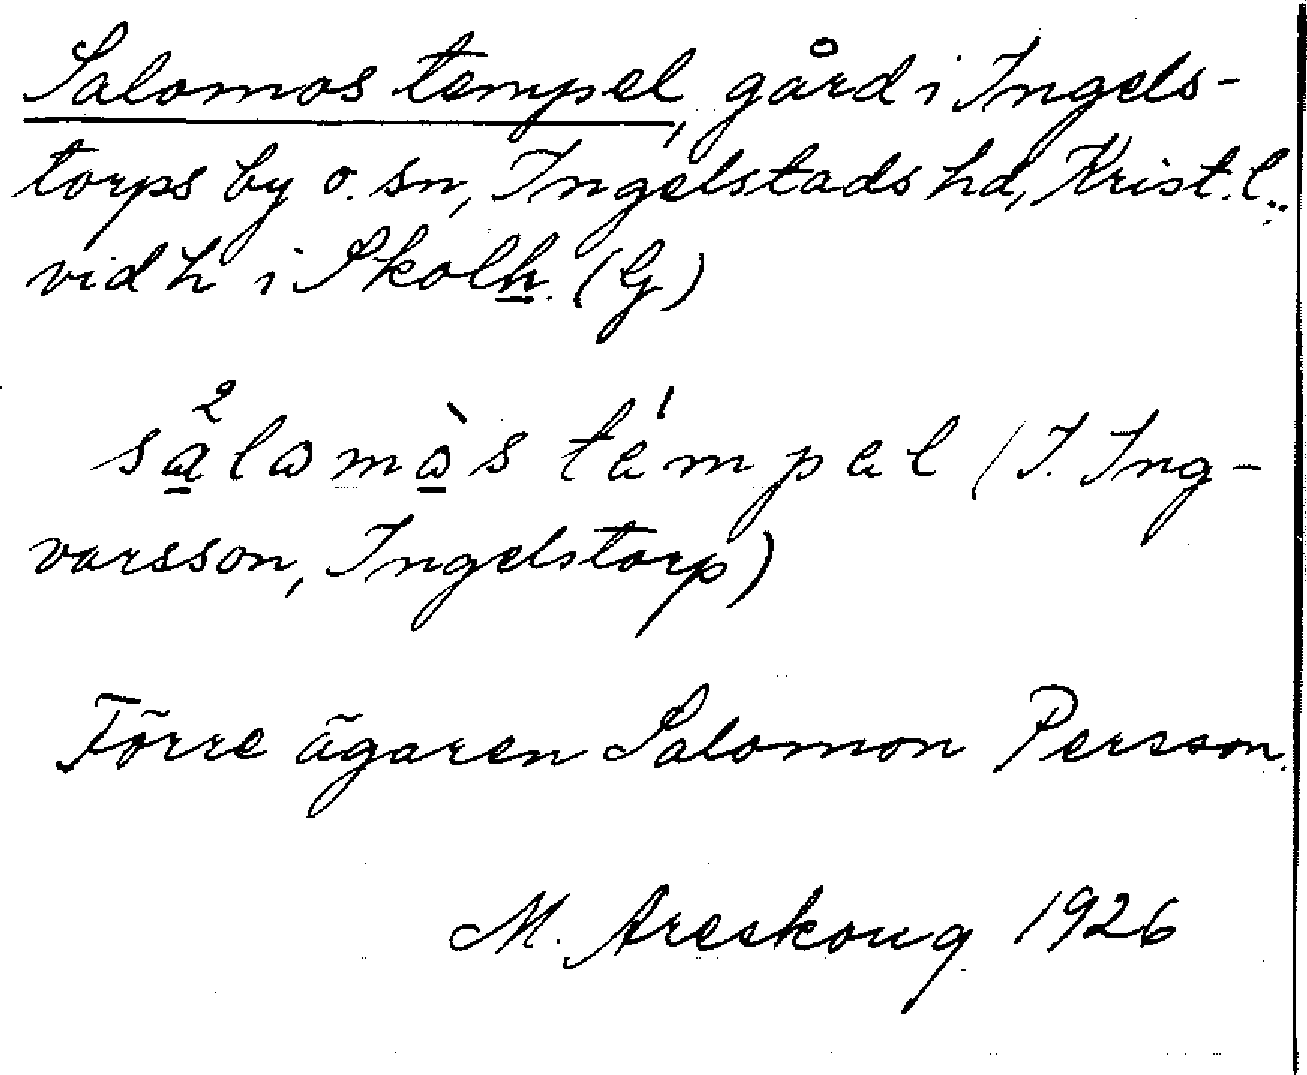 Salomos tempel, gård i Ingels-
torps by o. sn, Ingelstads hd, Krist. l.
vid h i Skolh. (G)
salomòs témpel (J. Ing-
varsson, Ingelstorp)
Förre ägaren Salomon Persson.
M. Areskoug 1926